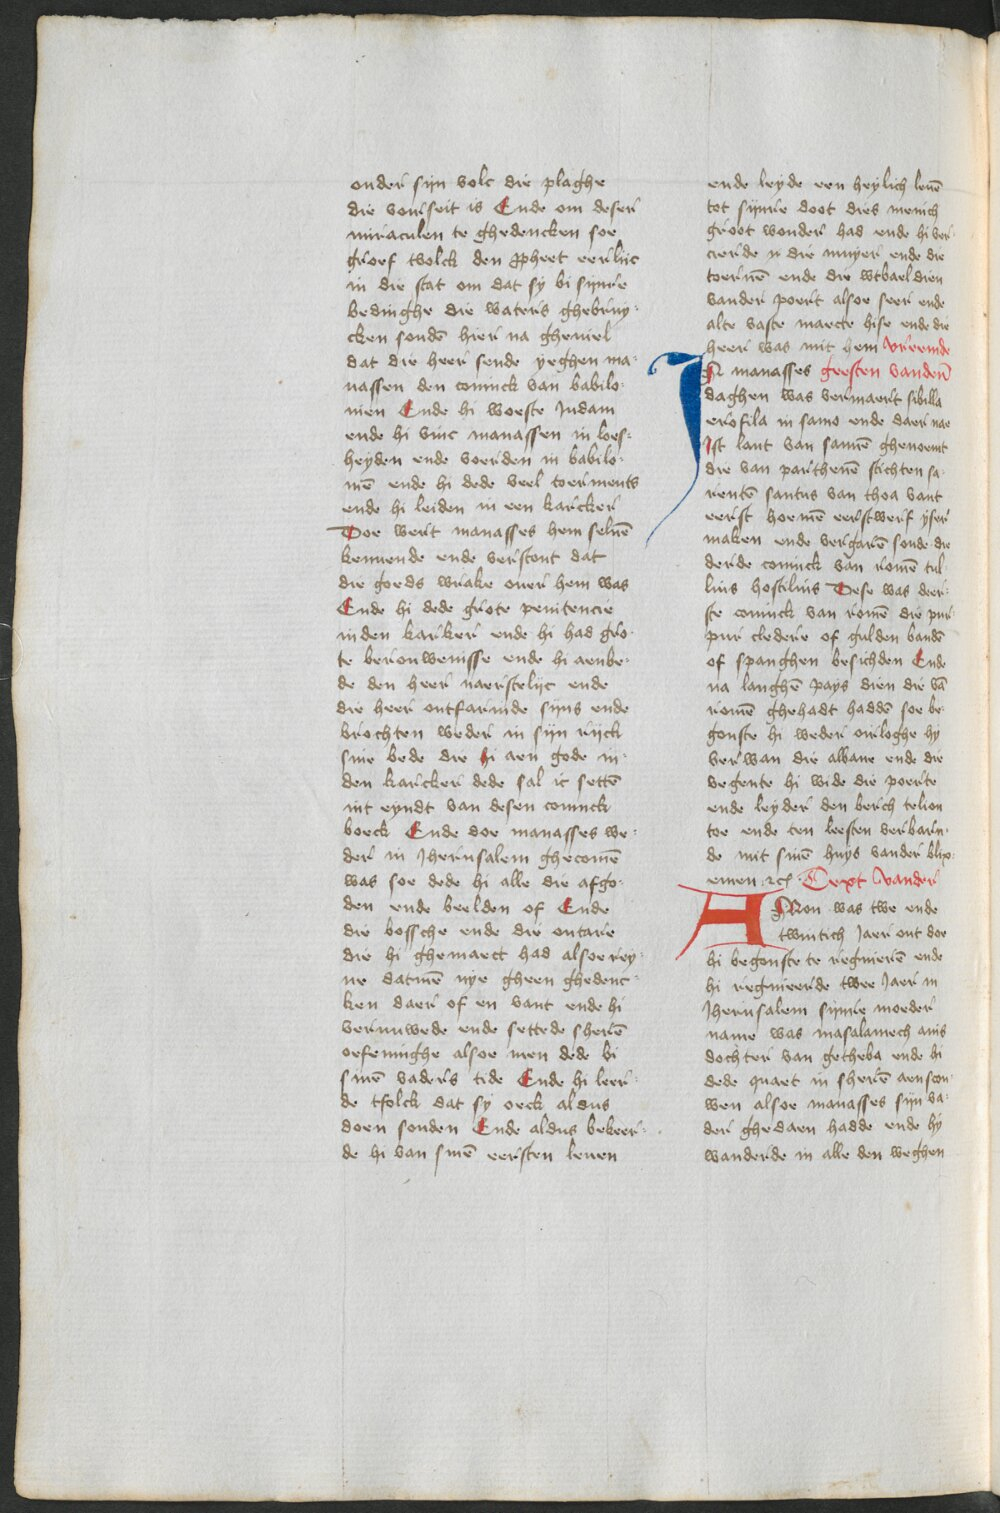 onder sijn volc die plaghe
die voirseit is Ende om deser
miraculen te ghedencken soe
groef tvolck den ꝓpheet eerliic
in die stat om dat sy bi sijnre
bedinghe die waters ghebruy-
cken souden hier na gheviel
dat die heer sende yeghen ma-
nassen den coninck van babilo-
nien Ende hi woeste Judam
ende hi vinc manassen in loes-
heyden ende voerden in babilo-
niē ende hi dede veel toerments
ende hi leiden in een karcker
Doe wert manasses hem seluē
kennende ende verstont dat
die goeds wrake ouer hem was
Ende hi dede grote penitencie
inden karker ende hi had gro-
te berouwenisse ende hi aenbe-
de den heer naerstelijc ende
die heer ontfarmde sijns ende
brochten weder in sijn rijck
sine bede die hi aen gode in
den karcker dede sal ic settē
int eyndt van desen coninck
boeck Ende doe manasses we-
der in Jherusalem ghecomē
was soe dede hi alle die afgo-
den ende beelden of Ende
die bossche ende die outare
die hi ghemaect had alsoe rey-
ne datmē nye gheen ghedenc-
ken daer of en vant ende hi
vernuwede ende settede sherē
oefeninghe alsoe men dede bi
sinē vaders tide Ende hi leer-
de tfolck dat sy oeck aldus
doen souden Ende aldus bekeer-
de hi van sinē eersten leuen
ende leyde een heylich leuē
tot sijnre doot dies menich
groot wonder had ende hi ver-
cierde
die muyer ende die
toernē ende die wtbaeldien
vander poert alsoe seer ende
alte vaste maecte hise ende die
heer was mit hem vreemde
IN manasses geesten vanden
daghen was vermaert sibilla
erofila in samo ende daer nae
Ist lant van samē ghenoemt
die van parthenē stichten sa-
rentē santus van thoa vant
eerst hoemē eerstwerf yser
maken ende vergarē soude die
derde coninck van romē tul-
lius hostilius Dese was deer-
ste coninck van romē die pur-
pur cledere of gulden bandē
of spanghen besichden Ende
na langhē pays dien die vā
romē ghehadt haddē soe be-
gonste hi weder oirloghe hy
verwan die albane ende die
vegente hi wide die poerte
ende leyder den berch telion
toe ende ten leesten verbarn-
de mit sinē huys vander blix-
emen ⁊cͤ Text vander
AMon was twe ende
twintich Jaer out doe
hi begonste te regnierē ende
hi regnierde twee Jaer in
Jherusalem sijnre moeder
name was masalamech anis
dochter van getheba ende hi
dede quaet in sherē aenscou-
wen alsoe manasses sijn va-
der ghedaen hadde ende hy
wanderde in alle den weghen